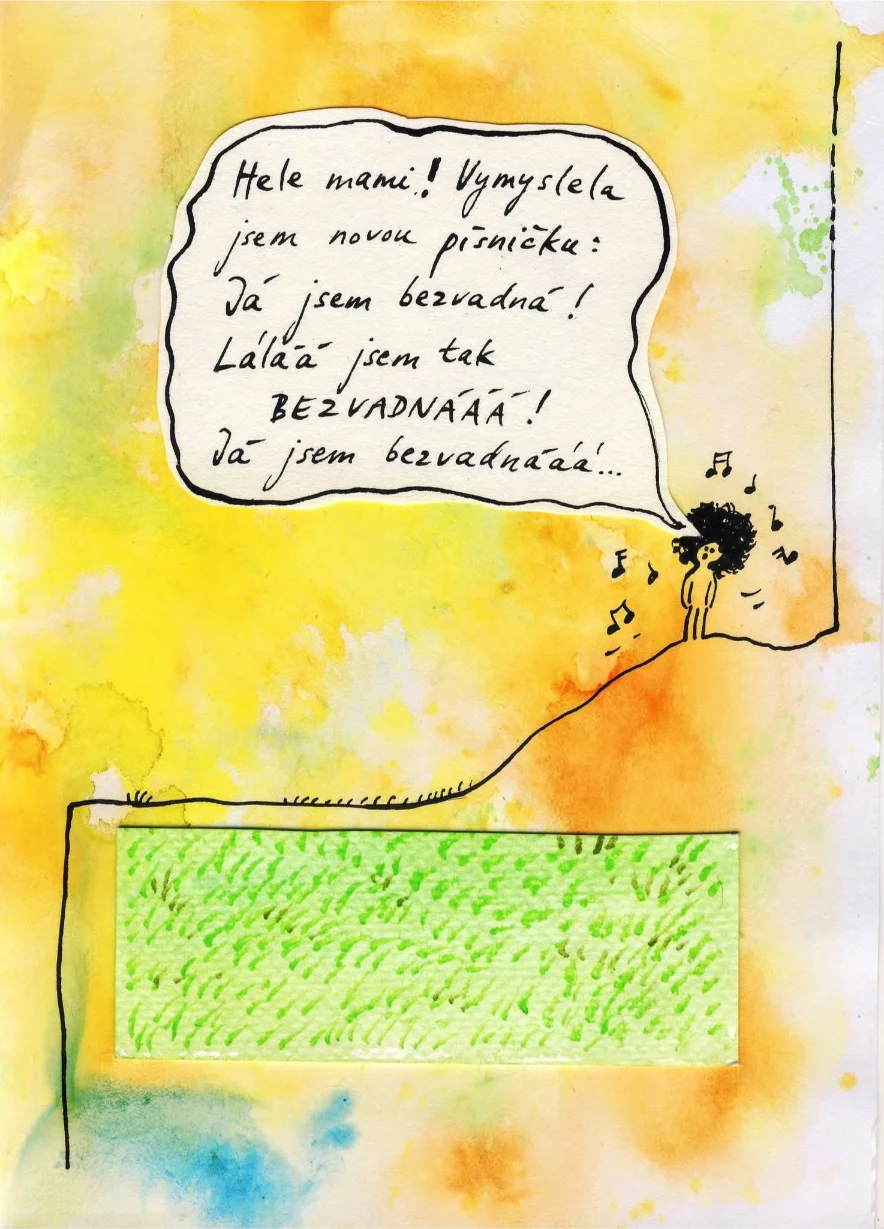 Hele mami! Vymyslela
jsem novou písničku:
Já jsem bezvadná!
Láláá jsem tak
BEZVADNÁÁÁ!
Já jsem bezvadnááá...